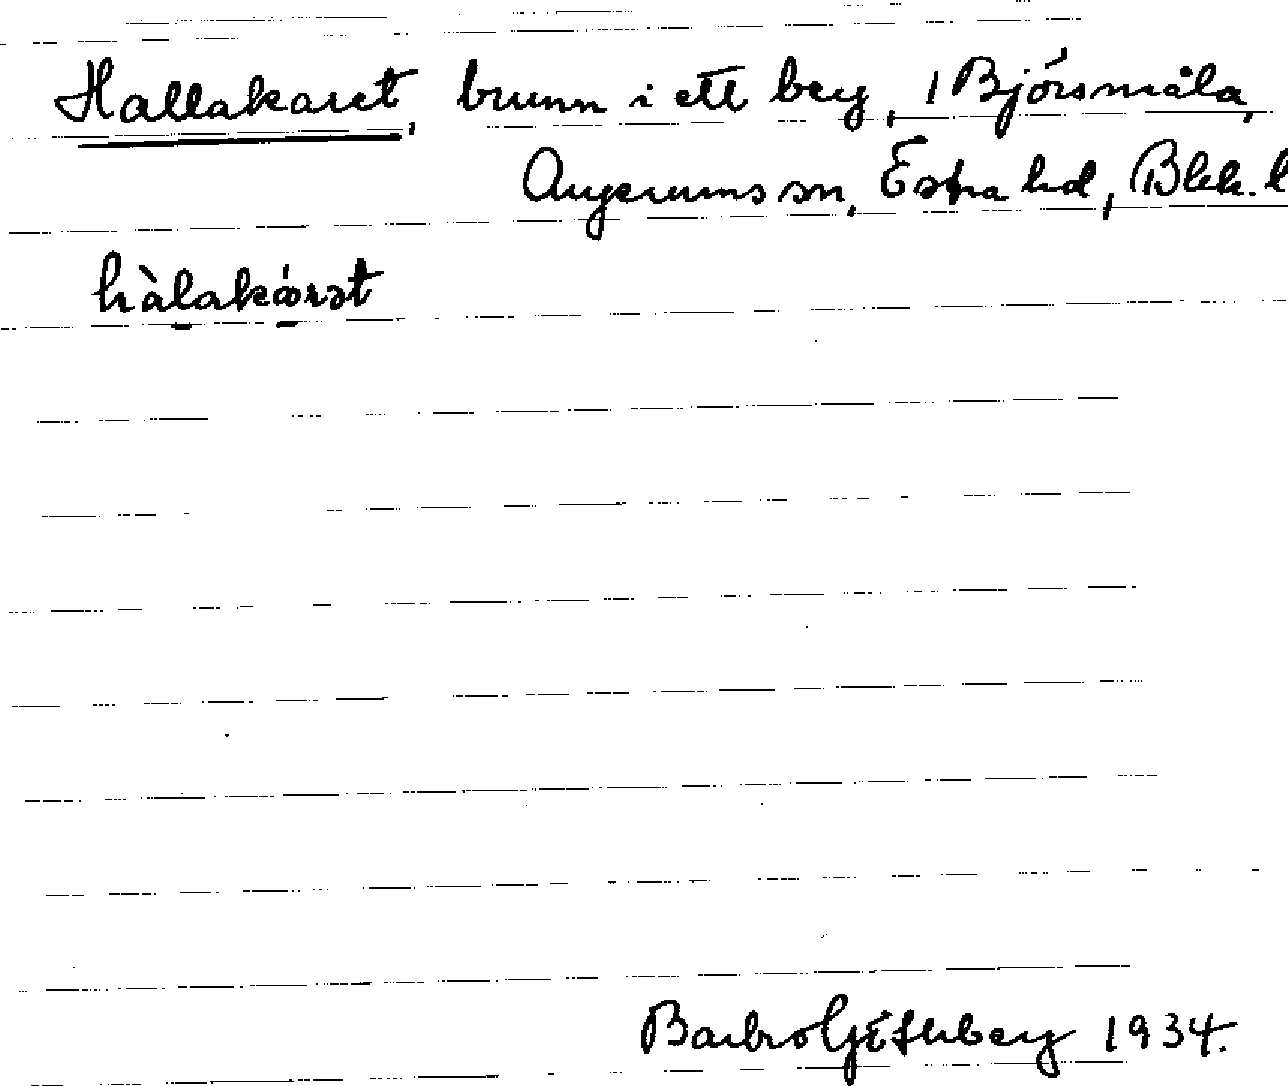 Hallakaret, brunn i ett berg, i Björsmåla,
Augerums sn, Östra hd, Blek. l
hàlakárət
Barbro 1934.